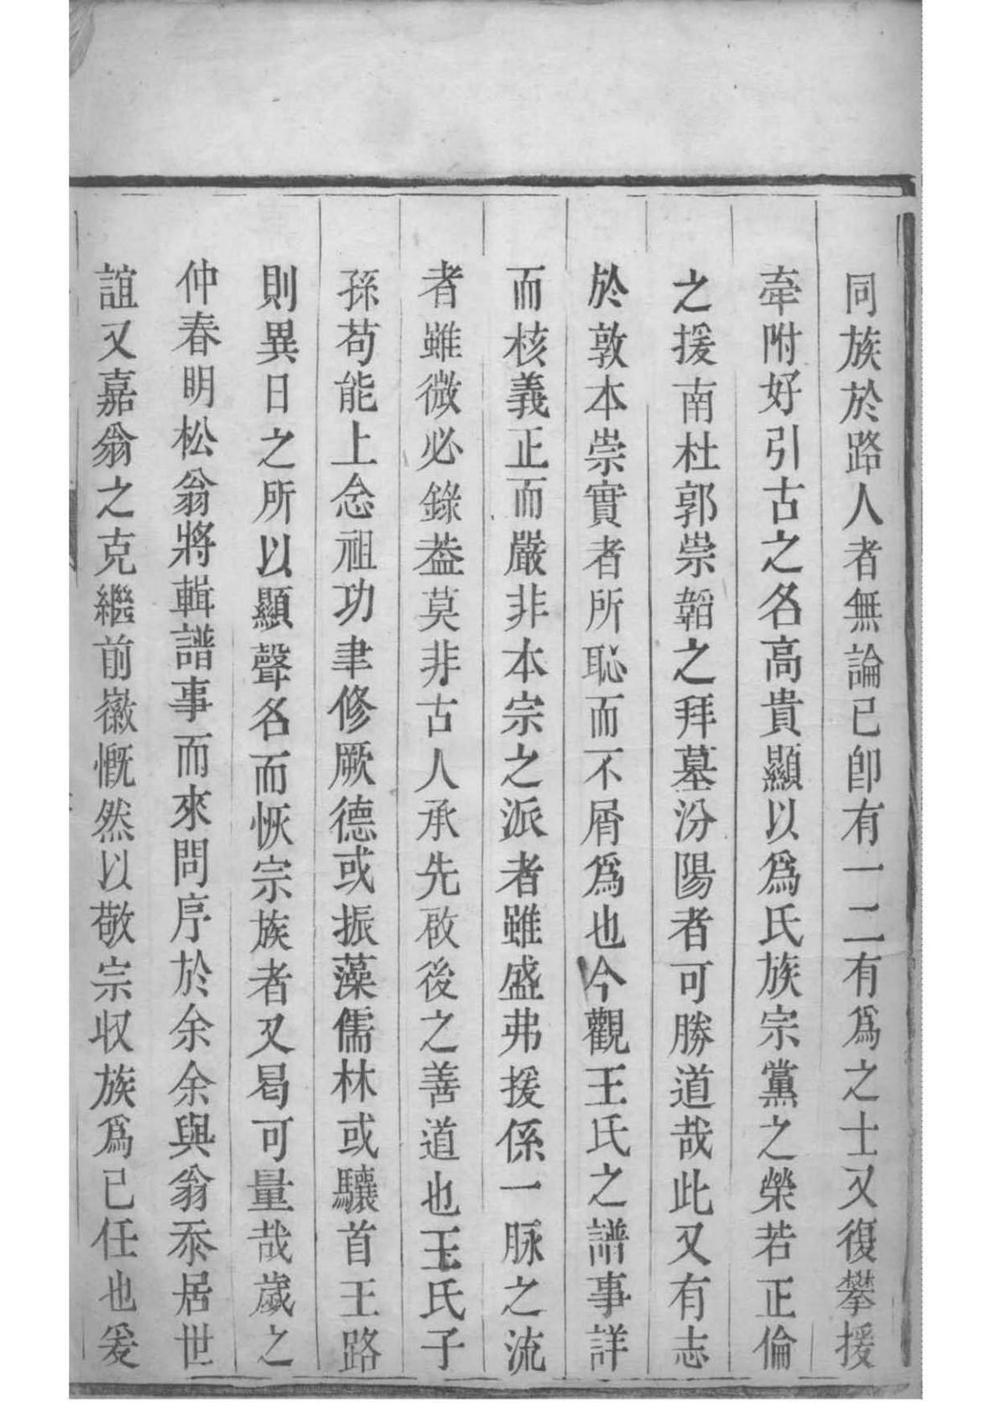 同族於路人者無論已卽有一二有爲之士又復攀援
牽附好引古之名高貴顯以爲氏族宗黨之榮若正倫
之援南杜郭崇韜之拜墓汾陽者可勝道哉此又有志
於敦本崇實者所恥而不屑爲也今觀王氏之譜事詳
而核義正而嚴非本宗之派者雖盛弗援係一脉之流
者雖微必錄葢莫非古人承先啟後之善道也王氏子
孫苟能上念祖功聿修厥德或振藻儒林或驤首王路
則異日之所以顯聲名而恢宗族者又曷可量哉歲之
仲春明松翁將輯譜事而來問序於余余與翁忝居世
誼又嘉翁之克繼前徽慨然以敬宗収族爲已任也爰